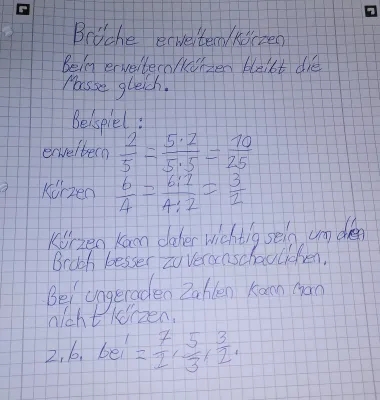 Brüche erweitern/Kürzen
Beim erweitern/Kürzen bleibt die
Masse gleich.
Beispiel:
erweitern 2/5 = 5·2/5·5 = 10/25
Kürzen 6/4 = 6:2/4:2 = 3/2
Kürzen kann daher wichtig sein um den
Bruch besser zu veranschaulichen.
Bei ungeraden Zahlen kann man
nicht kürzen.
z.b. bei = 7/2, 5/3, 3/2.